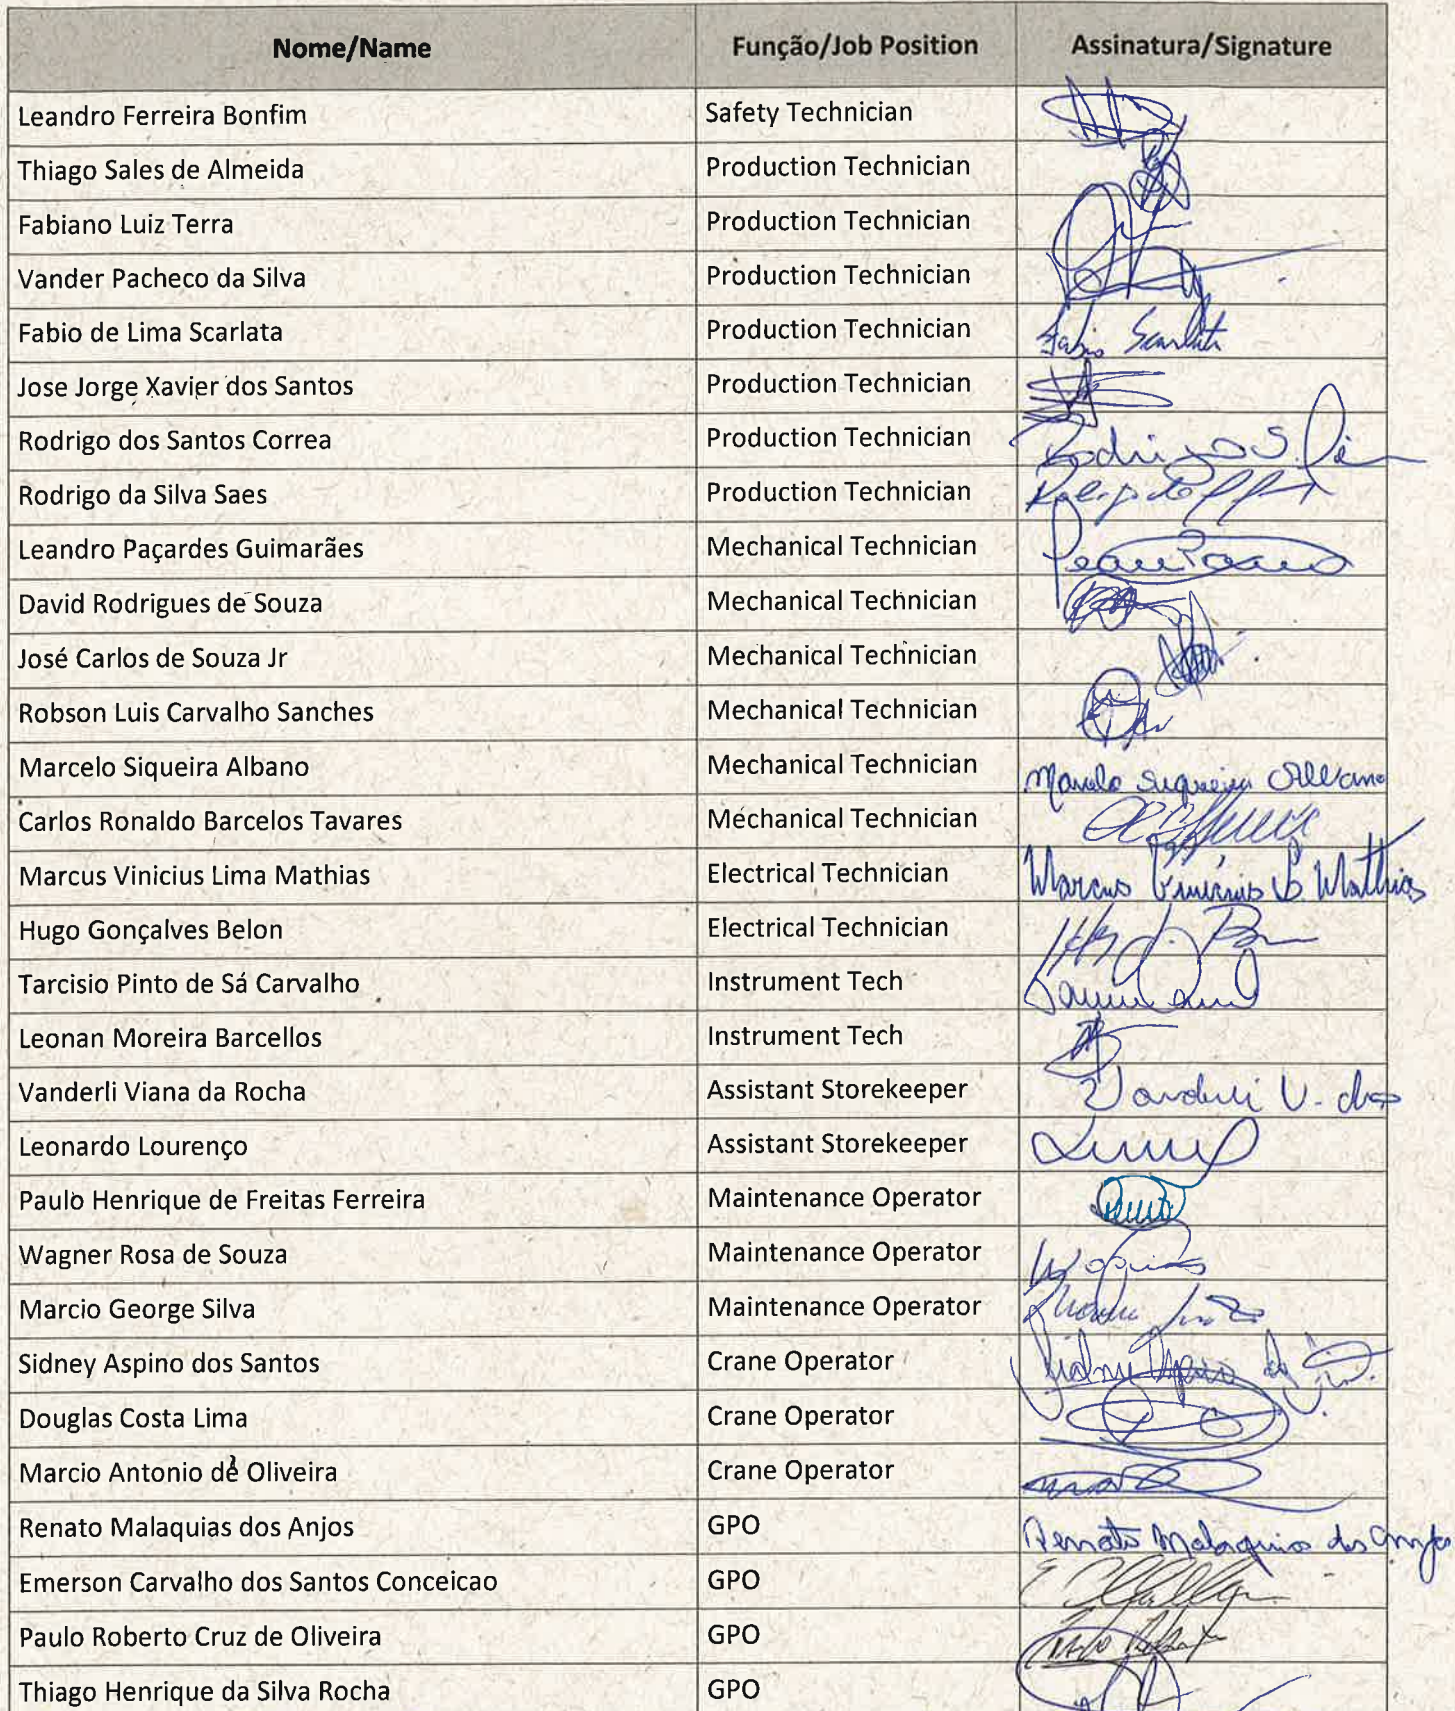 Nome/Name Função/Job Position Assinatura/Signature
Leandro Ferreira Bonfim Safety Technician
Thiago Sales de Almeida Production Technician
Fabiano Luiz Terra Production Technician
Vander Pacheco da Silva Production Technician
Fabio de Lima Scarlata Production Technician Fabio Scarlata
Jose Jorge Xavier dos Santos Production Technician
Rodrigo dos Santos Correa Production Technician Rodrigo S.
Rodrigo da Silva Saes Production Technician
Leandro Paçardes Guimarães Mechanical Technician
David Rodrigues de Souza Mechanical Technician
José Carlos de Souza Jr Mechanical Technician
Robson Luis Carvalho Sanches Mechanical Technician
Marcelo Siqueira Albano Mechanical Technician Marcelo Siqueira Albano
Carlos Ronaldo Barcelos Tavares Mechanical Technician
Marcus Vinicius Lima Mathias Electrical Technician Marcus Vinicius L. Mathias
Hugo Gonçalves Belon Electrical Technician
Tarcisio Pinto de Sá Carvalho Instrument Tech
Leonan Moreira Barcellos Instrument Tech
Vanderli Viana da Rocha Assistant Storekeeper Vanderli V. da
Leonardo Lourenço Assistant Storekeeper
Paulo Henrique de Freitas Ferreira Maintenance Operator
Wagner Rosa de Souza Maintenance Operator
Marcio George Silva Maintenance Operator
Sidney Aspino dos Santos Crane Operator Sidney
Douglas Costa Lima Crane Operator
Marcio Antonio de Oliveira Crane Operator
Renato Malaquias dos Anjos GPO Renato Malaquias dos Anjos
Emerson Carvalho dos Santos Conceicao GPO
Paulo Roberto Cruz de Oliveira GPO
Thiago Henrique da Silva Rocha GPO